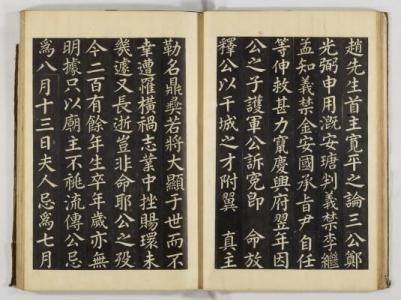 趙先生首主寬平之論三公鄭
光弼申用漑安瑭判義禁李繼
孟知義禁金安國承旨尹自任
等伸救甚力竄慶興府翌年因
公之子護軍公訴寃卽　命放
釋公以干城之才附翼　真主
勒名鼎彝若將大顯于世而不
幸遭罹橫禍志業中挫賜環未
幾遽又長逝豈非命耶公之歿
今二百有餘年生卒年歲亦無
明據只以廟主不祧流傳公忌
爲八月十三日夫人忌爲七月